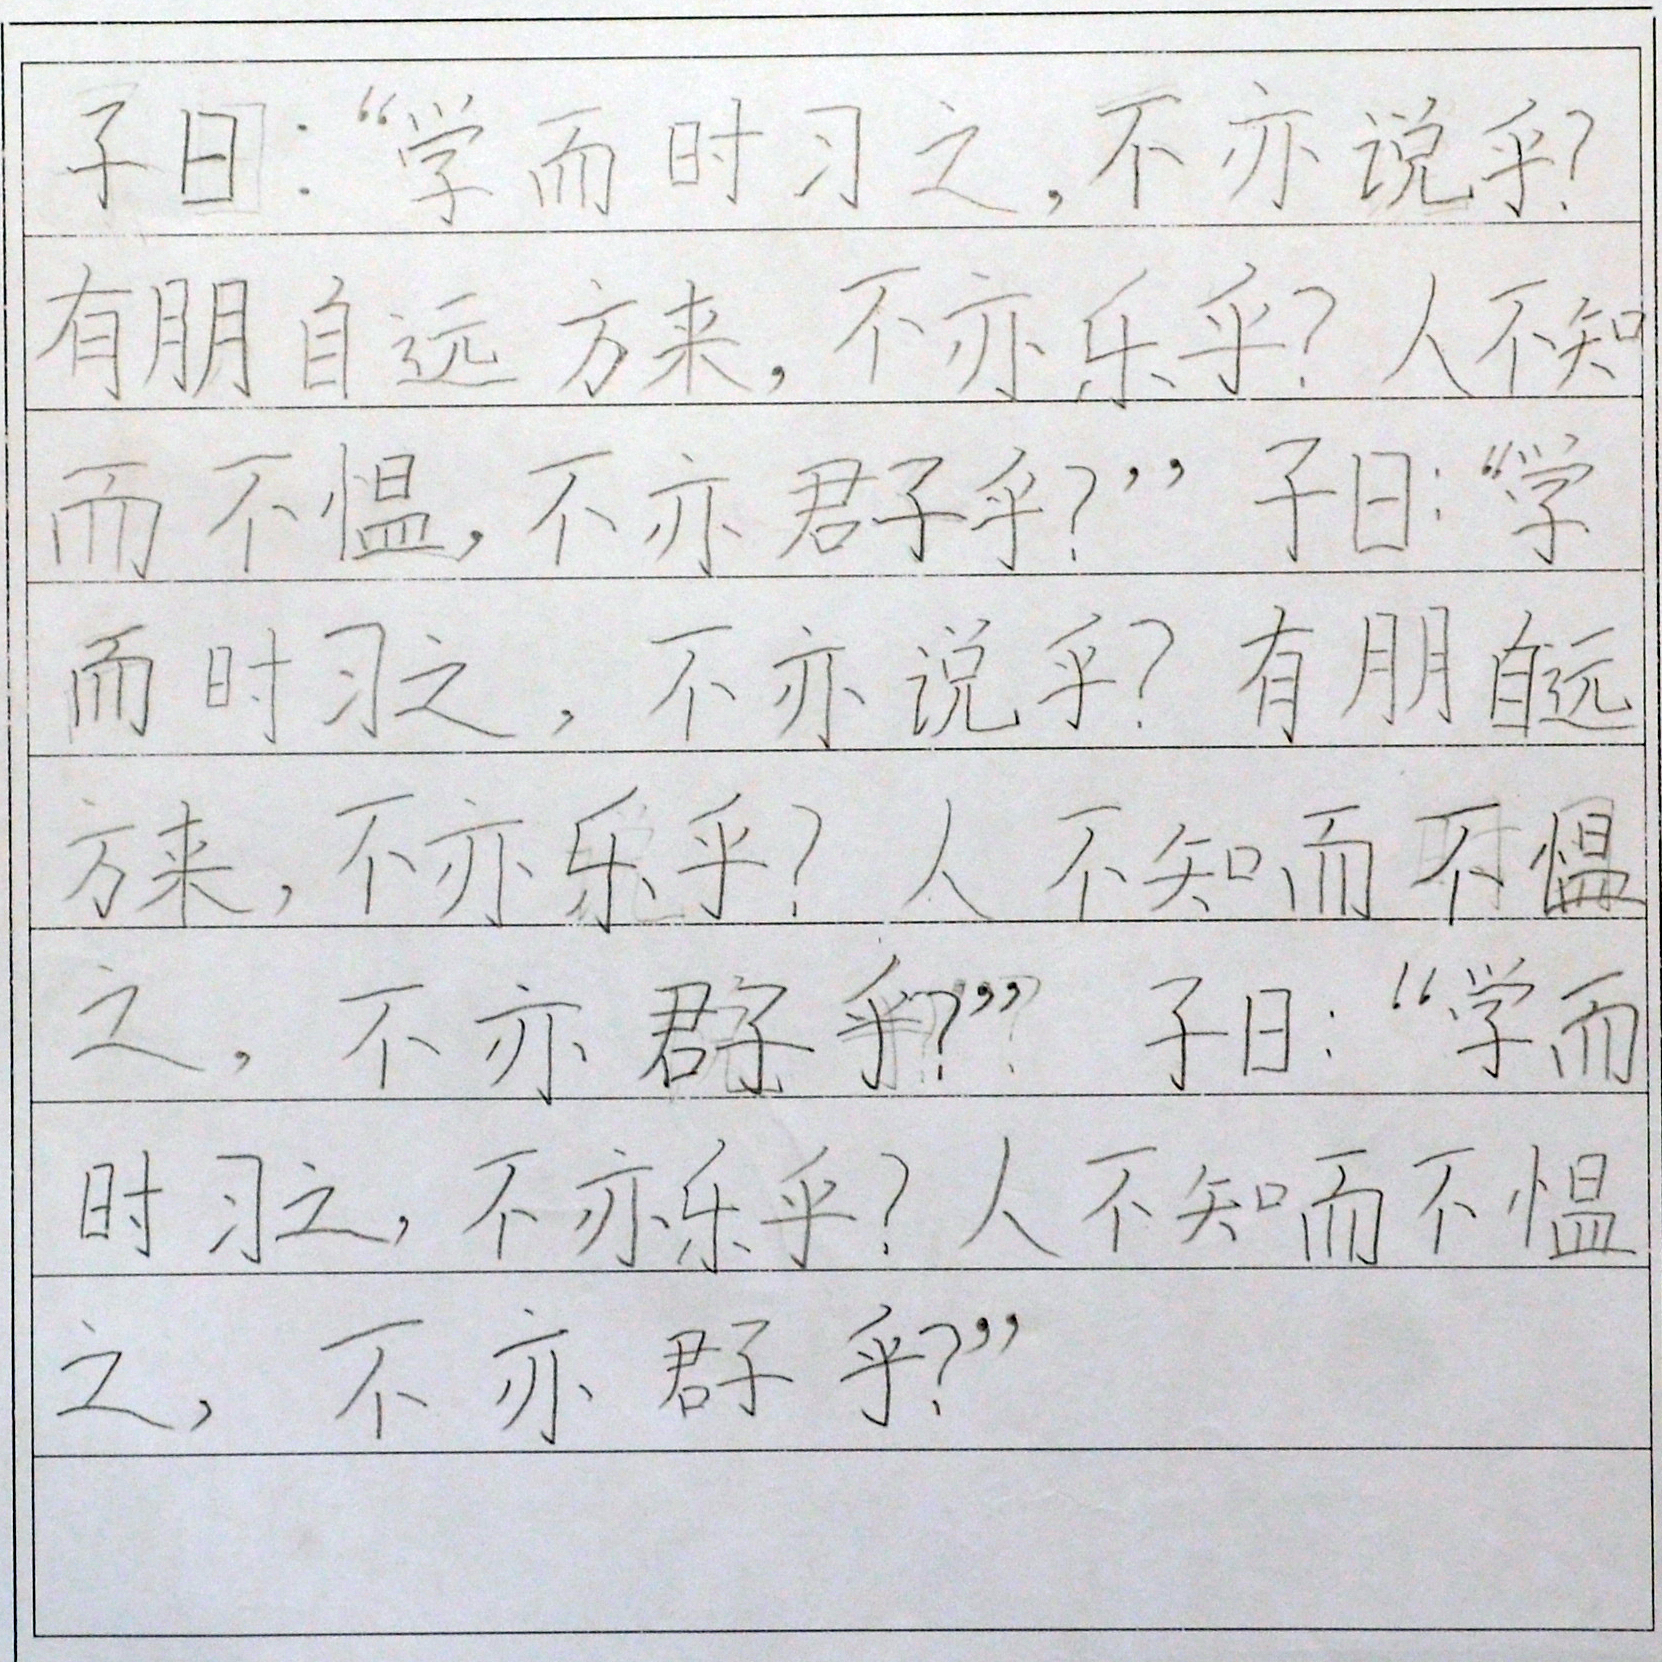 子曰：“学而时习之，不亦说乎？
有朋自远方来，不亦乐乎？人不知
而不愠，不亦君子乎？”子曰：“学
而时习之，不亦说乎？有朋自远
方来，不亦乐乎？人不知而不愠
之，不亦君子乎？”子曰：“学而
时习之，不亦乐乎？人不知而不愠
之，不亦君子乎？”